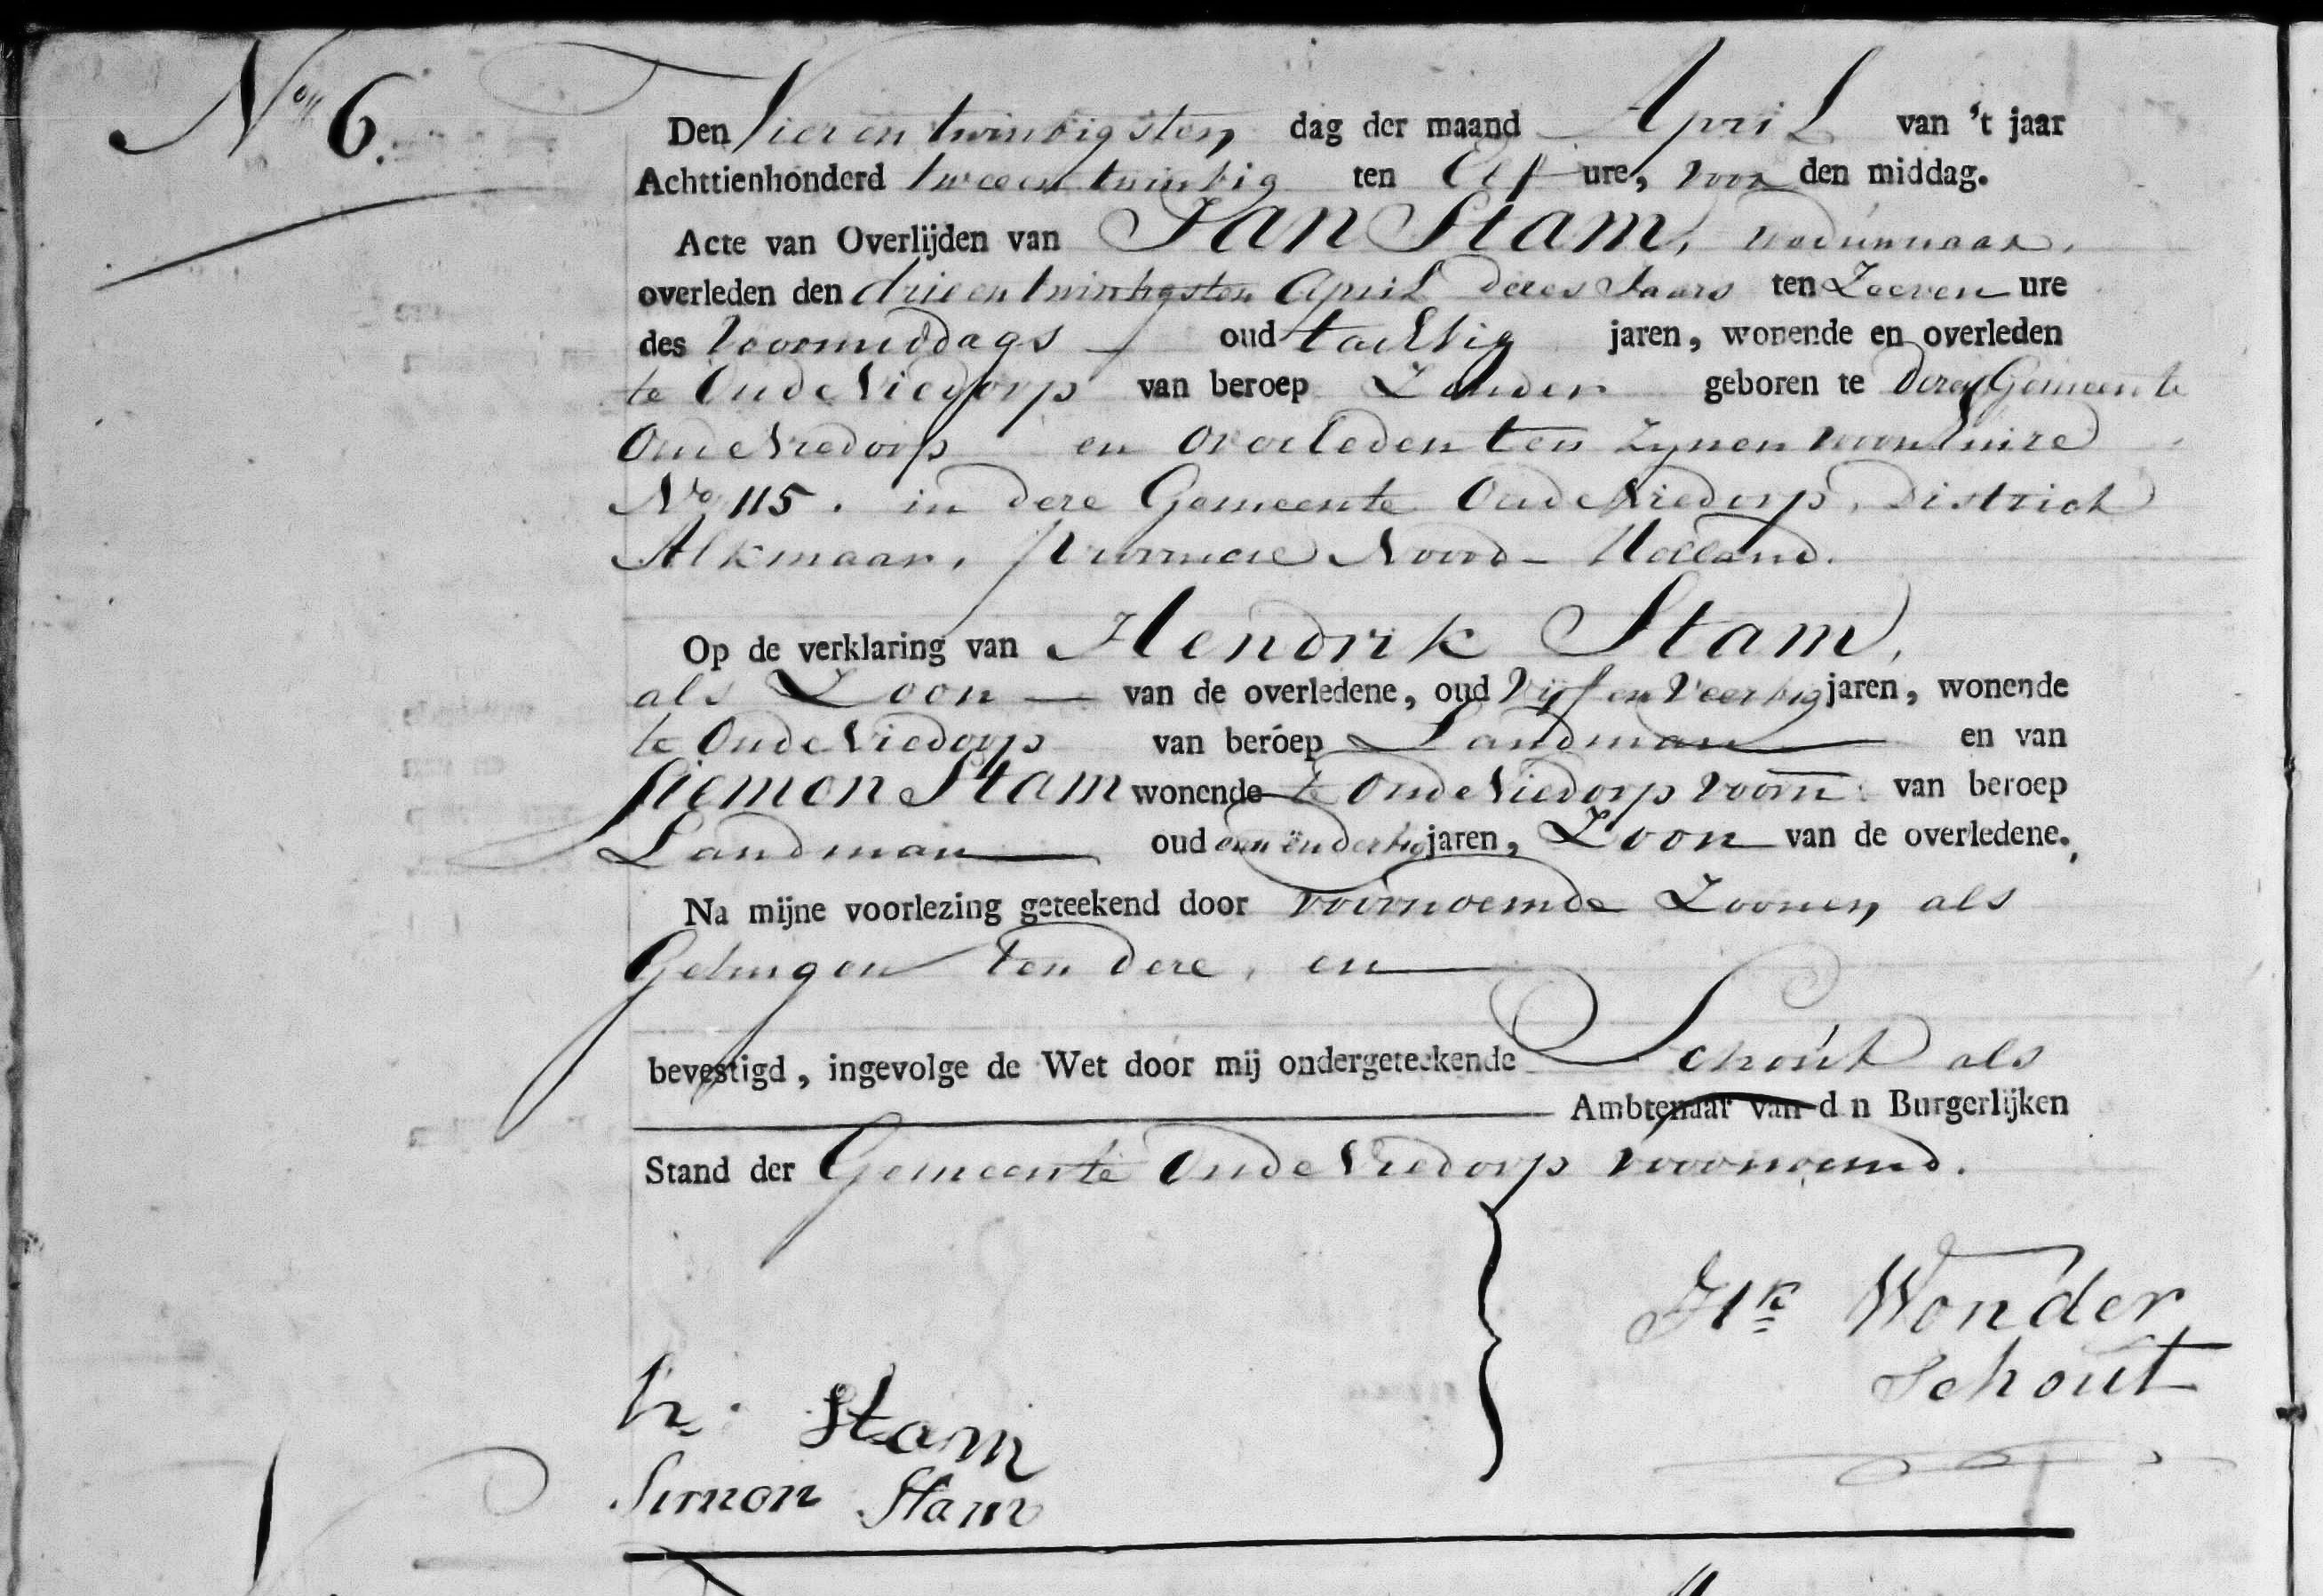 No 6.
Den Vier en twintigsten dag der maand April van 't jaar
Achttienhonderd twee en twintig ten Elf ure, voor den middag.
Acte van Overlijden van Jan Stam, weduwnaar,
overleden den drie en twintigsten April dezes Jaars ten Zeeven ure
des voormiddags oud tachtig jaren, wonende en overleden
te Oude Niedorp van beroep Zonder geboren te dezer Gemeente
Oude Niedorp en overleden ten zynen woonhuize
No 115. in deze Gemeente Oude Niedorp, District
Alkmaar, Provincie Noord-Holland.
Op de verklaring van Hendrik Stam,
als Zoon van de overledene, oud Vijf en Veertig jaren, wonende
te Oude Niedorp van beroep Landman en van
Siemon Stam wonende te Oude Niedorp voorn: van beroep
Landman oud een en dertig jaren, Zoon van de overledene.
Na mijne voorlezing geteekend door voornoemde Zoonen, als
Getuigen ten deze, en
bevestigd, ingevolge de Wet door mij ondergeteekende Schout als
Ambtenaar van d n Burgerlijken
Stand der Gemeente Oude Niedorp voornoemd.
Hk Wonder
Schout
h. Stam
Simon Stam